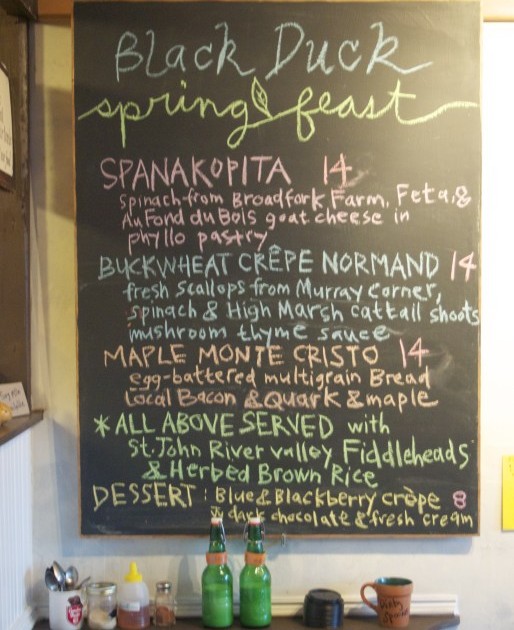 Black Duck
spring feast
SPANAKOPITA 14
Spinach from Broadfork Farm, Feta, &
Au Fond du Bois goat cheese in
phyllo pastry
BUCKWHEAT CRÊPE NORMAND 14
fresh scallops from Murray Corner,
spinach & High Marsh cattail shoots
mushroom thyme sauce
MAPLE MONTE CRISTO 14
egg-battered multigrain Bread
Local Bacon & Quark & maple
*ALL ABOVE SERVED with
St. John River valley Fiddleheads
& Herbed Brown Rice
DESSERT: Blue & Blackberry crêpe 8
& dark chocolate & fresh cream